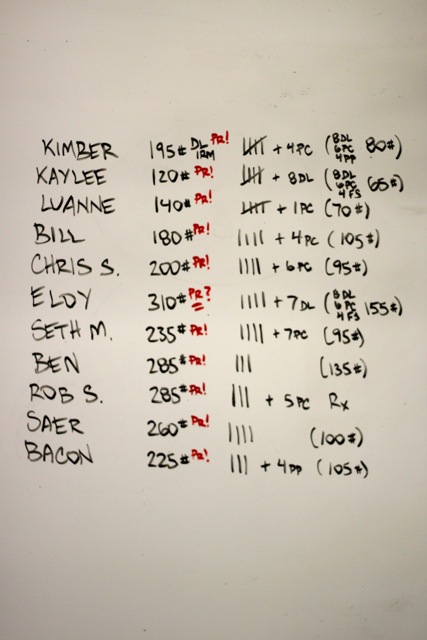 KIMBER 195# DL 1RM PR! |||| + 4PC (8DL 6PC 4PP 80#)
KAYLEE 120# PR! |||| + 8DL (8DL 6PC 4FS 65#)
LUANNE 140# PR! |||| + 1PC (70#)
BILL 180# PR! |||| + 4PC (105#)
CHRIS S. 200# PR! |||| + 6PC (95#)
ELOY 310# PR? |||| + 7DL (8DL 6PC 4FS 155#)
SETH M. 235# PR! |||| + 7PC (95#)
BEN 285# PR! ||| (135#)
ROB S. 285# PR! ||| + 5PC Rx
SAER 260# PR! |||| (100#)
BACON 225# PR! ||| + 4PP (105#)